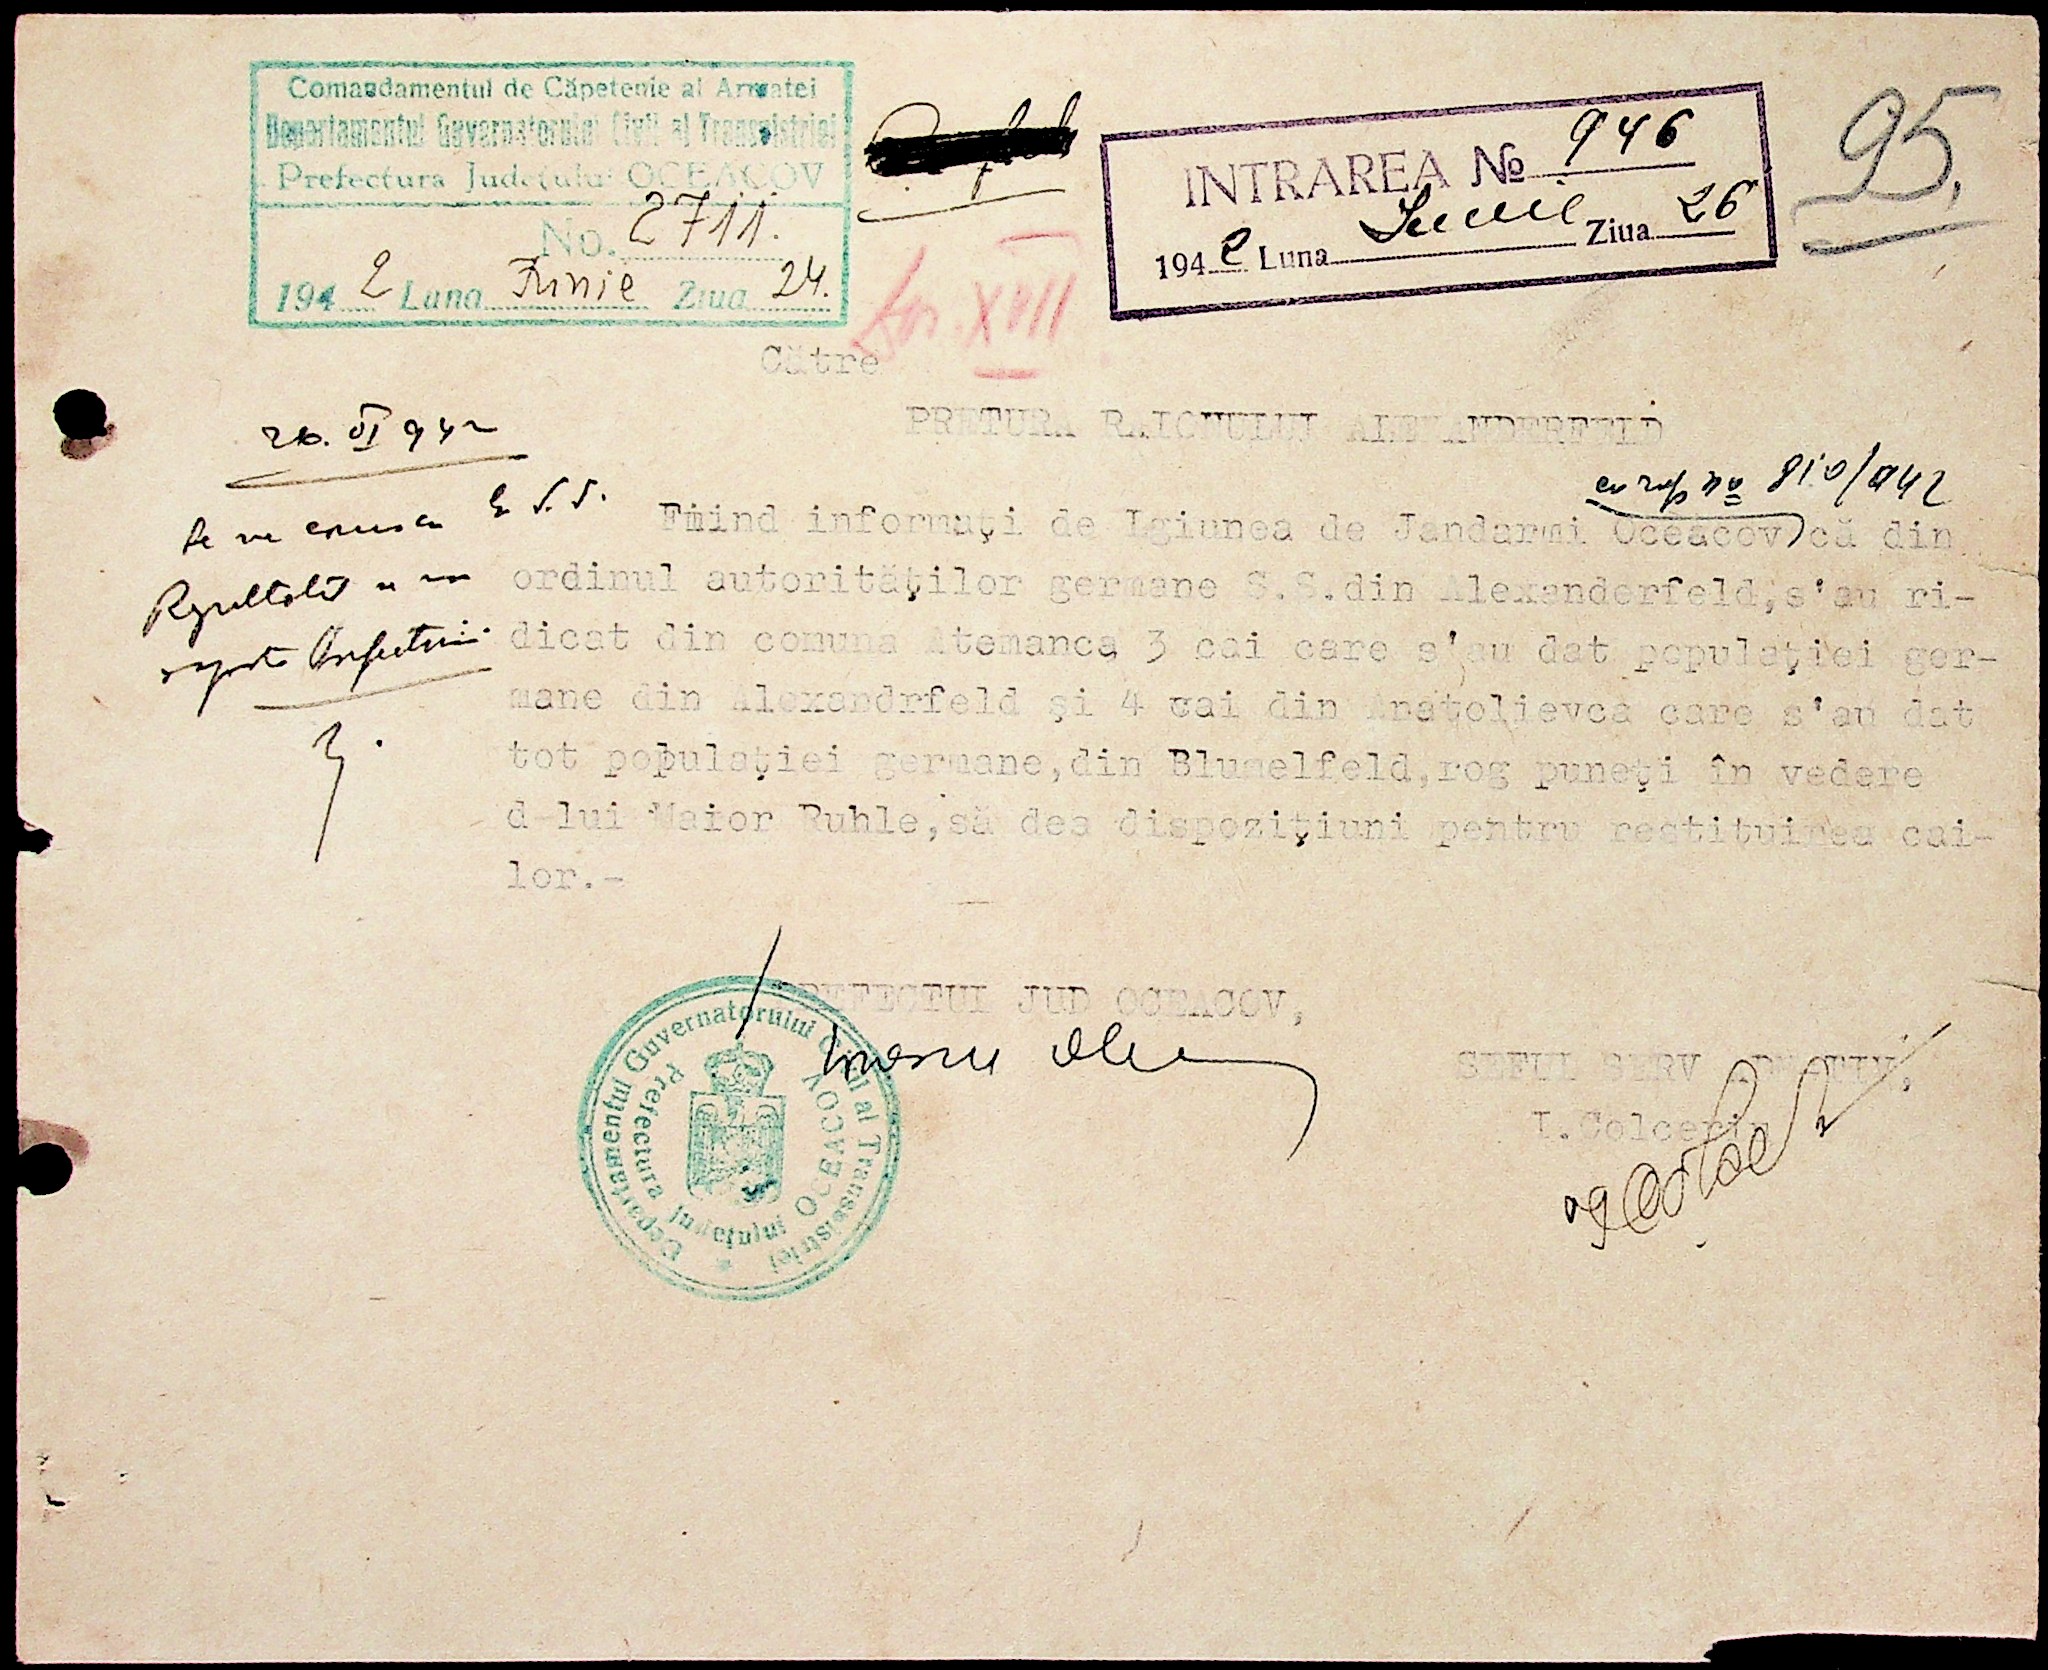 Comandamentul de Căpetenie al Armatei
Departamentul Guvernatorului Civil al Transnistriei
Prefectura Județului OCEACOV
No. 2711.
1942 Luna Iunie Ziua 24.
INTRAREA № 946
1942 Luna Iunie Ziua 26
95.
XVII
Către
PRETURA RAIONULUI ALEXANDERFELD
26. VI 942
cu rap nº 810/942
S.S.
Fiind informați de Lgiunea de Jandarmi Oceacov, că din
ordinul autorităților germane S.S.din Alexanderfeld,s'au ri-
dicat din comuna Atemanca 3 cai care s'au dat populației ger-
mane din Alexandrfeld și 4 cai din Anatolievca care s'au dat
tot populației germane,din Blumelfeld,rog puneți în vedere
d-lui Maior Ruhle,să dea dispozițiuni pentru restituirea cai-
lor.-
Se va comunica
Rezultatul se va
raporta Prefecturii.
PREFECTUI JUD OCEACOV,
SEFUL SERV ADMATIV,
I.Colceriu
Departamentul Guvernatorului Civil al Transnistriei
Prefectura Județului OCEACOV